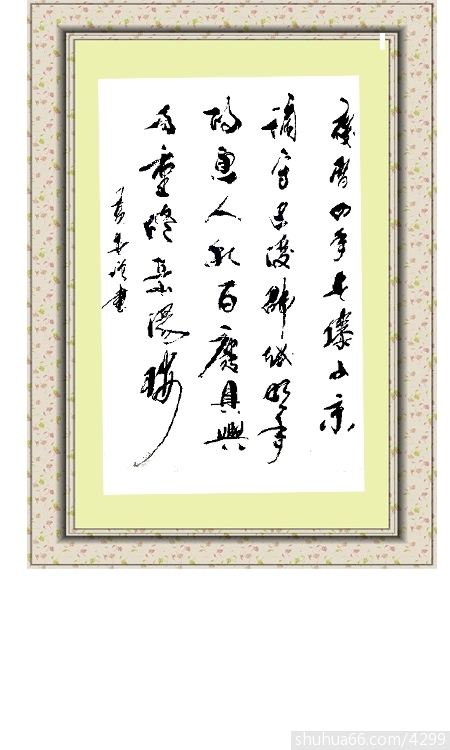 慶曆四年春滕子京
謫守巴陵郡越明年
政通人和百廢具興
乃重修岳陽樓
書
shuhua66.com/4299